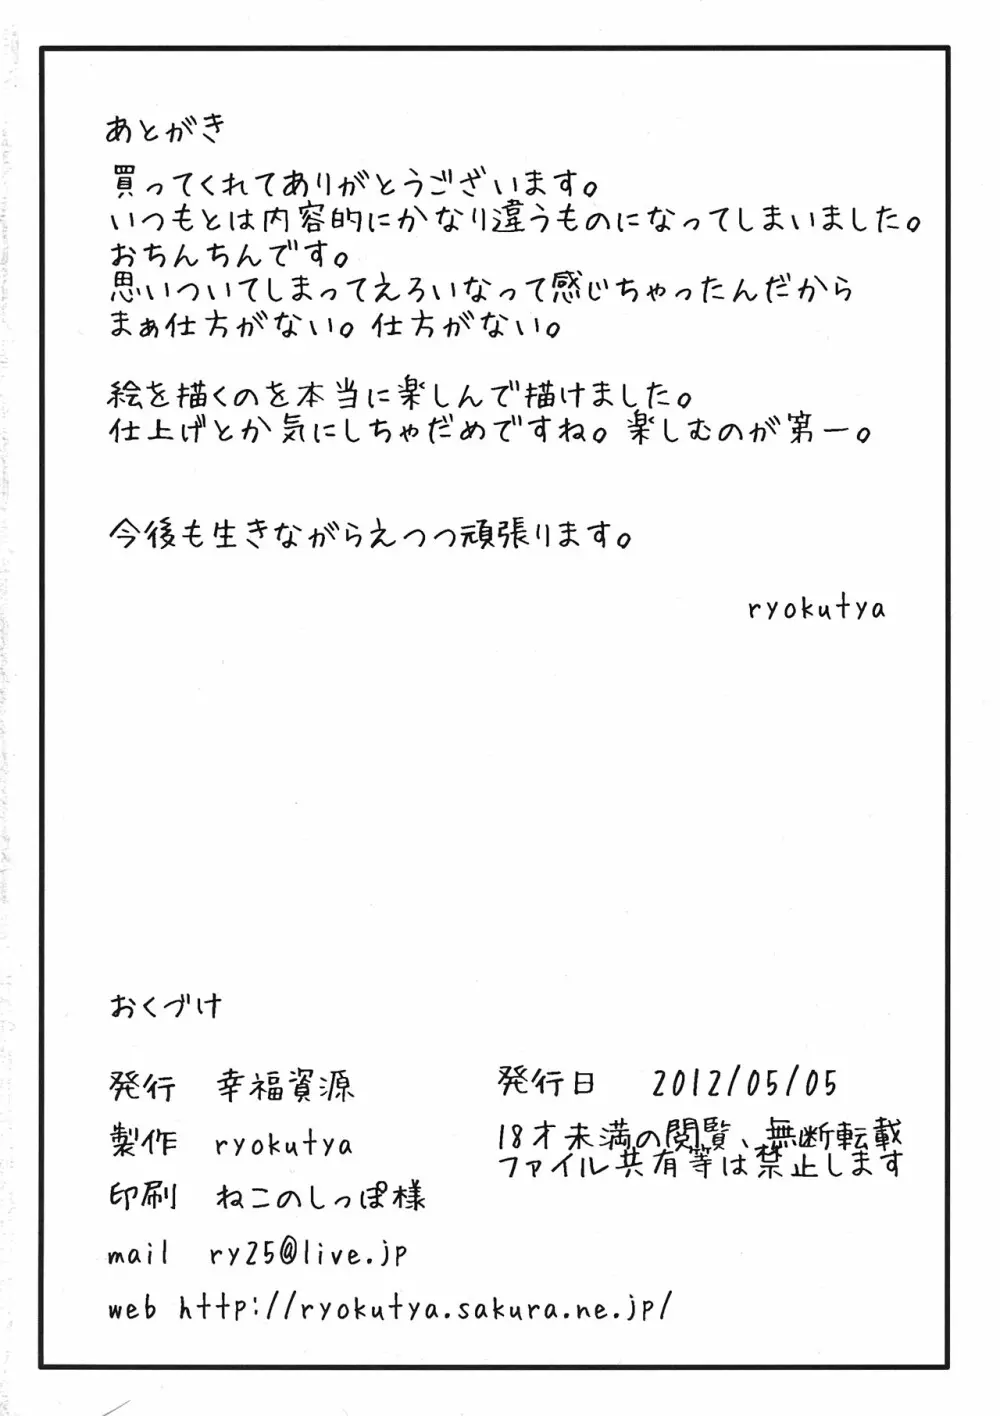 あとがき
買ってくれてありがとうございます。
いつもとは内容的にかなり違うものになってしまいました。
おちんちんです。
思いついてしまってえろいなって感じちゃったんだから
まぁ仕方がない。仕方がない。
絵を描くのを本当に楽しんで描けました。
仕上げとか気にしちゃだめですね。楽しむのが第一。
今後も生きながらえつつ頑張ります。
ryokutya
おくづけ
発行 幸福資源
製作 ryokutya
印刷 ねこのしっぽ様
mail ry25@live.jp
web http://ryokutya.sakura.ne.jp/
発行日 2012/05/05
18才未満の閲覧、無断転載
ファイル共有等は禁止します